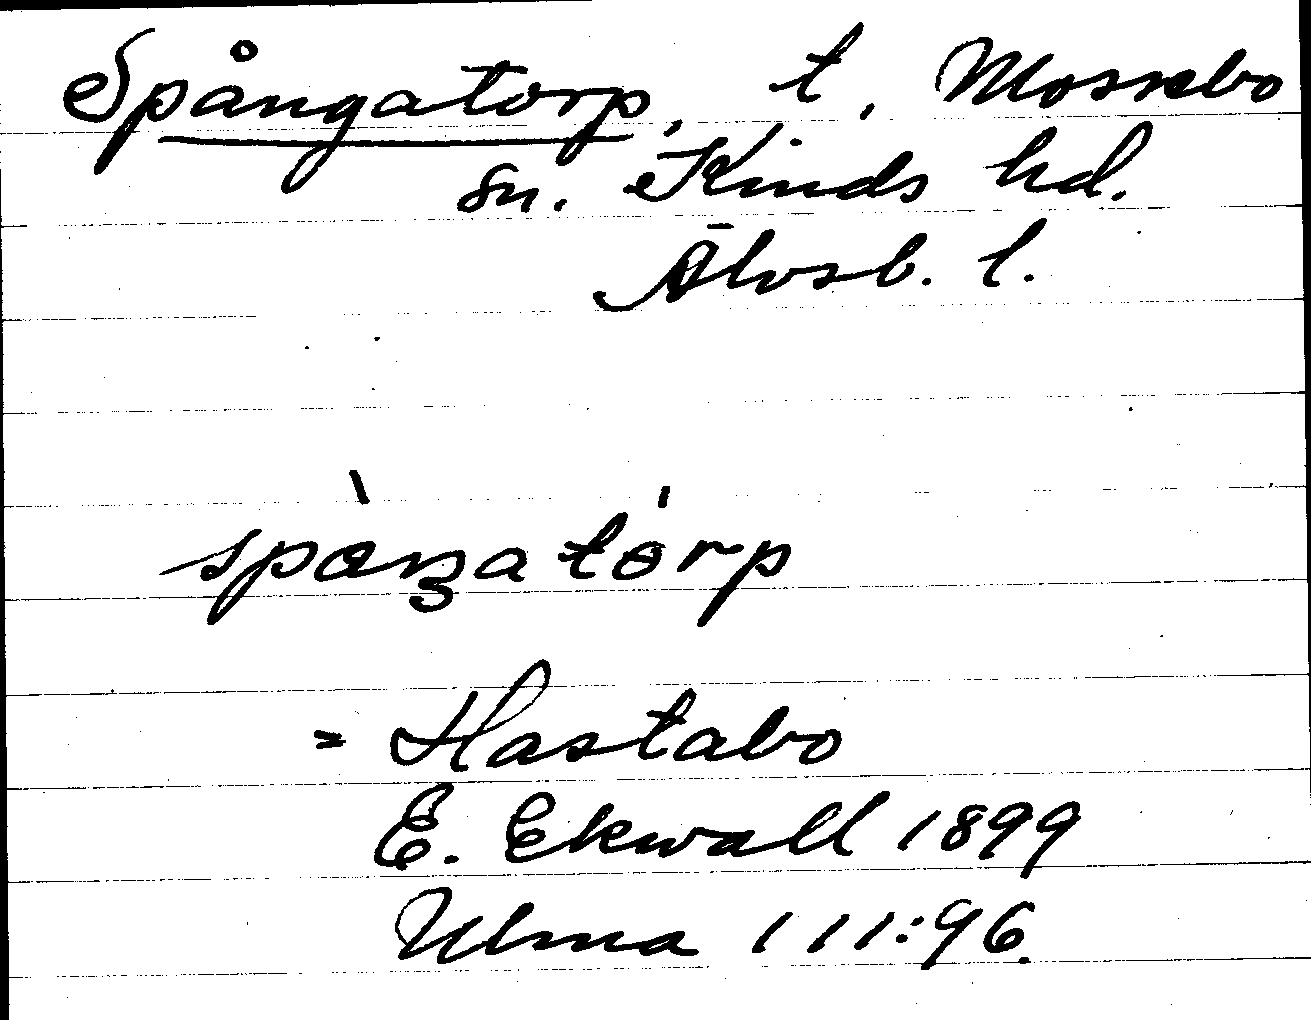 Spångatorp, t, Mossebo
sn. Kinds hd.
Älvsb. l.
= Hastabo
E. Ekwall 1899
Ulma 111:96.